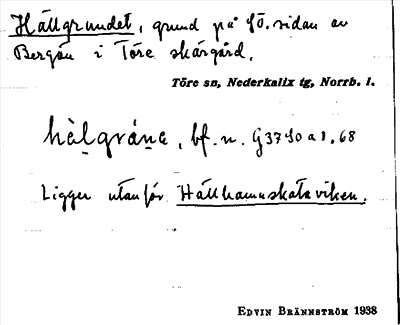 Hällgrundet, grund på sö. sidan av
Bergön i Töre skärgård.
Töre sn, Nederkalix tg, Norrb. l.
hàl̥grún̥e, bf. n. G3730 a 1.68
Ligger utanför Hällhamnskataviken.
EDVIN BRÄNNSTRÖM 1938